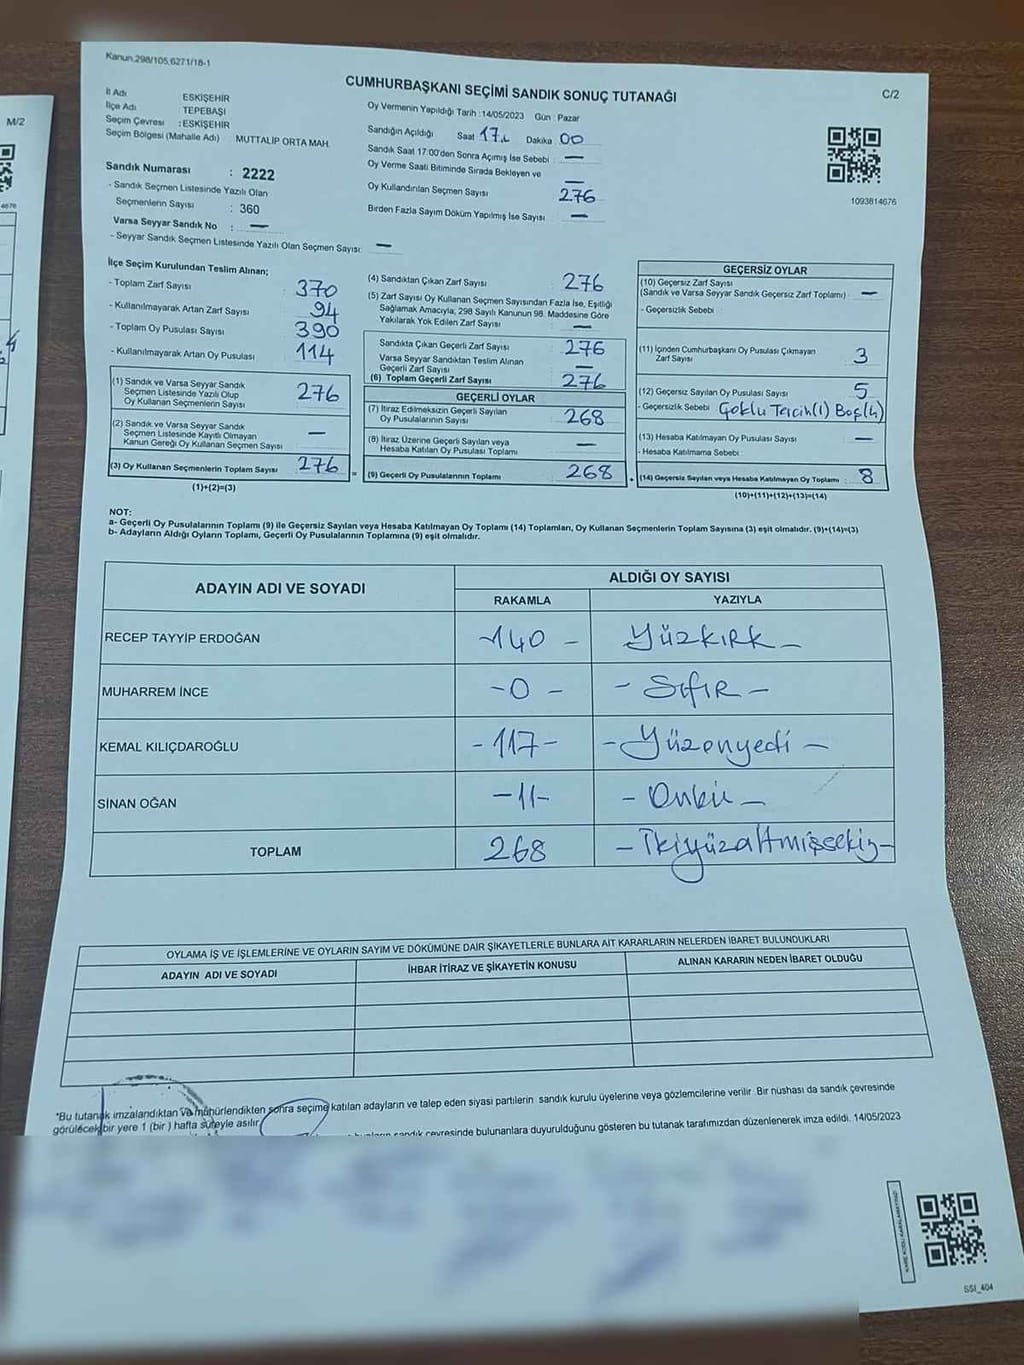 M/2
Kanun.298/105,6271/18-1
CUMHURBAŞKANI SEÇİMİ SANDIK SONUÇ TUTANAĞI
C/2
İl Adı ESKİŞEHİR
İlçe Adı TEPEBAŞI
Seçim Çevresi : ESKİŞEHİR
Seçim Bölgesi (Mahalle Adı) MUTTALIP ORTA MAH.
Oy Vermenin Yapıldığı Tarih : 14/05/2023 Gün : Pazar
Sandığın Açıldığı Saat 17 Dakika 00
Sandık Saat 17:00'den Sonra Açımış İse Sebebi : —
Oy Verme Saati Bitiminde Sırada Bekleyen ve —
Oy Kullandırılan Seçmen Sayısı 276
Birden Fazla Sayım Döküm Yapılmış İse Sayısı —
1093814676
Sandık Numarası : 2222
- Sandık Seçmen Listesinde Yazılı Olan
Seçmenlerin Sayısı : 360
Varsa Seyyar Sandık No : —
- Seyyar Sandık Seçmen Listesinde Yazılı Olan Seçmen Sayısı: —
İlçe Seçim Kurulundan Teslim Alınan;
- Toplam Zarf Sayısı 370
- Kullanılmayarak Artan Zarf Sayısı 94
- Toplam Oy Pusulası Sayısı 390
- Kullanılmayarak Artan Oy Pusulası 114
(1) Sandık ve Varsa Seyyar Sandık
Seçmen Listesinde Yazılı Olup
Oy Kullanan Seçmenlerin Sayısı 276
(2) Sandık ve Varsa Seyyar Sandık
Seçmen Listesinde Kayıtlı Olmayan
Kanun Gereği Oy Kullanan Seçmen Sayısı —
(3) Oy Kullanan Seçmenlerin Toplam Sayısı 276
(1)+(2)=(3)
(4) Sandıktan Çıkan Zarf Sayısı 276
(5) Zarf Sayısı Oy Kullanan Seçmen Sayısından Fazla İse, Eşitliği
Sağlamak Amacıyla; 298 Sayılı Kanunun 98. Maddesine Göre
Yakılarak Yok Edilen Zarf Sayısı —
Sandıkta Çıkan Geçerli Zarf Sayısı 276
Varsa Seyyar Sandıktan Teslim Alınan
Geçerli Zarf Sayısı —
(6) Toplam Geçerli Zarf Sayısı 276
GEÇERLİ OYLAR
(7) İtiraz Edilmeksizin Geçerli Sayılan
Oy Pusulalarının Sayısı 268
(8) İtiraz Üzerine Geçerli Sayılan veya
Hesaba Katılan Oy Pusulası Toplamı —
(9) Geçerli Oy Pusulalarının Toplamı 268
GEÇERSİZ OYLAR
(10) Geçersiz Zarf Sayısı
(Sandık ve Varsa Seyyar Sandık Geçersiz Zarf Toplamı) —
- Geçersizlik Sebebi
(11) İçinden Cumhurbaşkanı Oy Pusulası Çıkmayan
Zarf Sayısı 3
(12) Geçersiz Sayılan Oy Pusulası Sayısı 5
- Geçersizlik Sebebi Çoklu Tercih(1) Boş(4)
(13) Hesaba Katılmayan Oy Pusulası Sayısı —
- Hesaba Katılmama Sebebi :
(14) Geçersiz Sayılan veya Hesaba Katılmayan Oy Toplamı : 8
(10)+(11)+(12)+(13)=(14)
NOT:
a- Geçerli Oy Pusulalarının Toplamı (9) ile Geçersiz Sayılan veya Hesaba Katılmayan Oy Toplamı (14) Toplamları, Oy Kullanan Seçmenlerin Toplam Sayısına (3) eşit olmalıdır. (9)+(14)=(3)
b- Adayların Aldığı Oyların Toplamı, Geçerli Oy Pusulalarının Toplamına (9) eşit olmalıdır.
ADAYIN ADI VE SOYADI
ALDIĞI OY SAYISI
RAKAMLA YAZIYLA
RECEP TAYYİP ERDOĞAN -140- Yüzkırk-
MUHARREM İNCE -0- -Sıfır-
KEMAL KILIÇDAROĞLU -117- -Yüzonyedi-
SİNAN OĞAN -11- -Onbir-
TOPLAM 268 -İkiyüzaltmışsekiz-
OYLAMA İŞ VE İŞLEMLERİNE VE OYLARIN SAYIM VE DÖKÜMÜNE DAİR ŞİKAYETLERLE BUNLARA AİT KARARLARIN NELERDEN İBARET BULUNDUKLARI
ADAYIN ADI VE SOYADI İHBAR İTİRAZ VE ŞİKAYETİN KONUSU ALINAN KARARIN NEDEN İBARET OLDUĞU
*Bu tutanak imzalandıktan ve mühürlendikten sonra seçime katılan adayların ve talep eden siyasi partilerin sandık kurulu üyelerine veya gözlemcilerine verilir. Bir nüshası da sandık çevresinde
görülecek bir yere 1 (bir) hafta süreyle asılır.
sandık çevresinde bulunanlara duyurulduğunu gösteren bu tutanak tarafımızdan düzenlenerek imza edildi. 14/05/2023
SSI_404